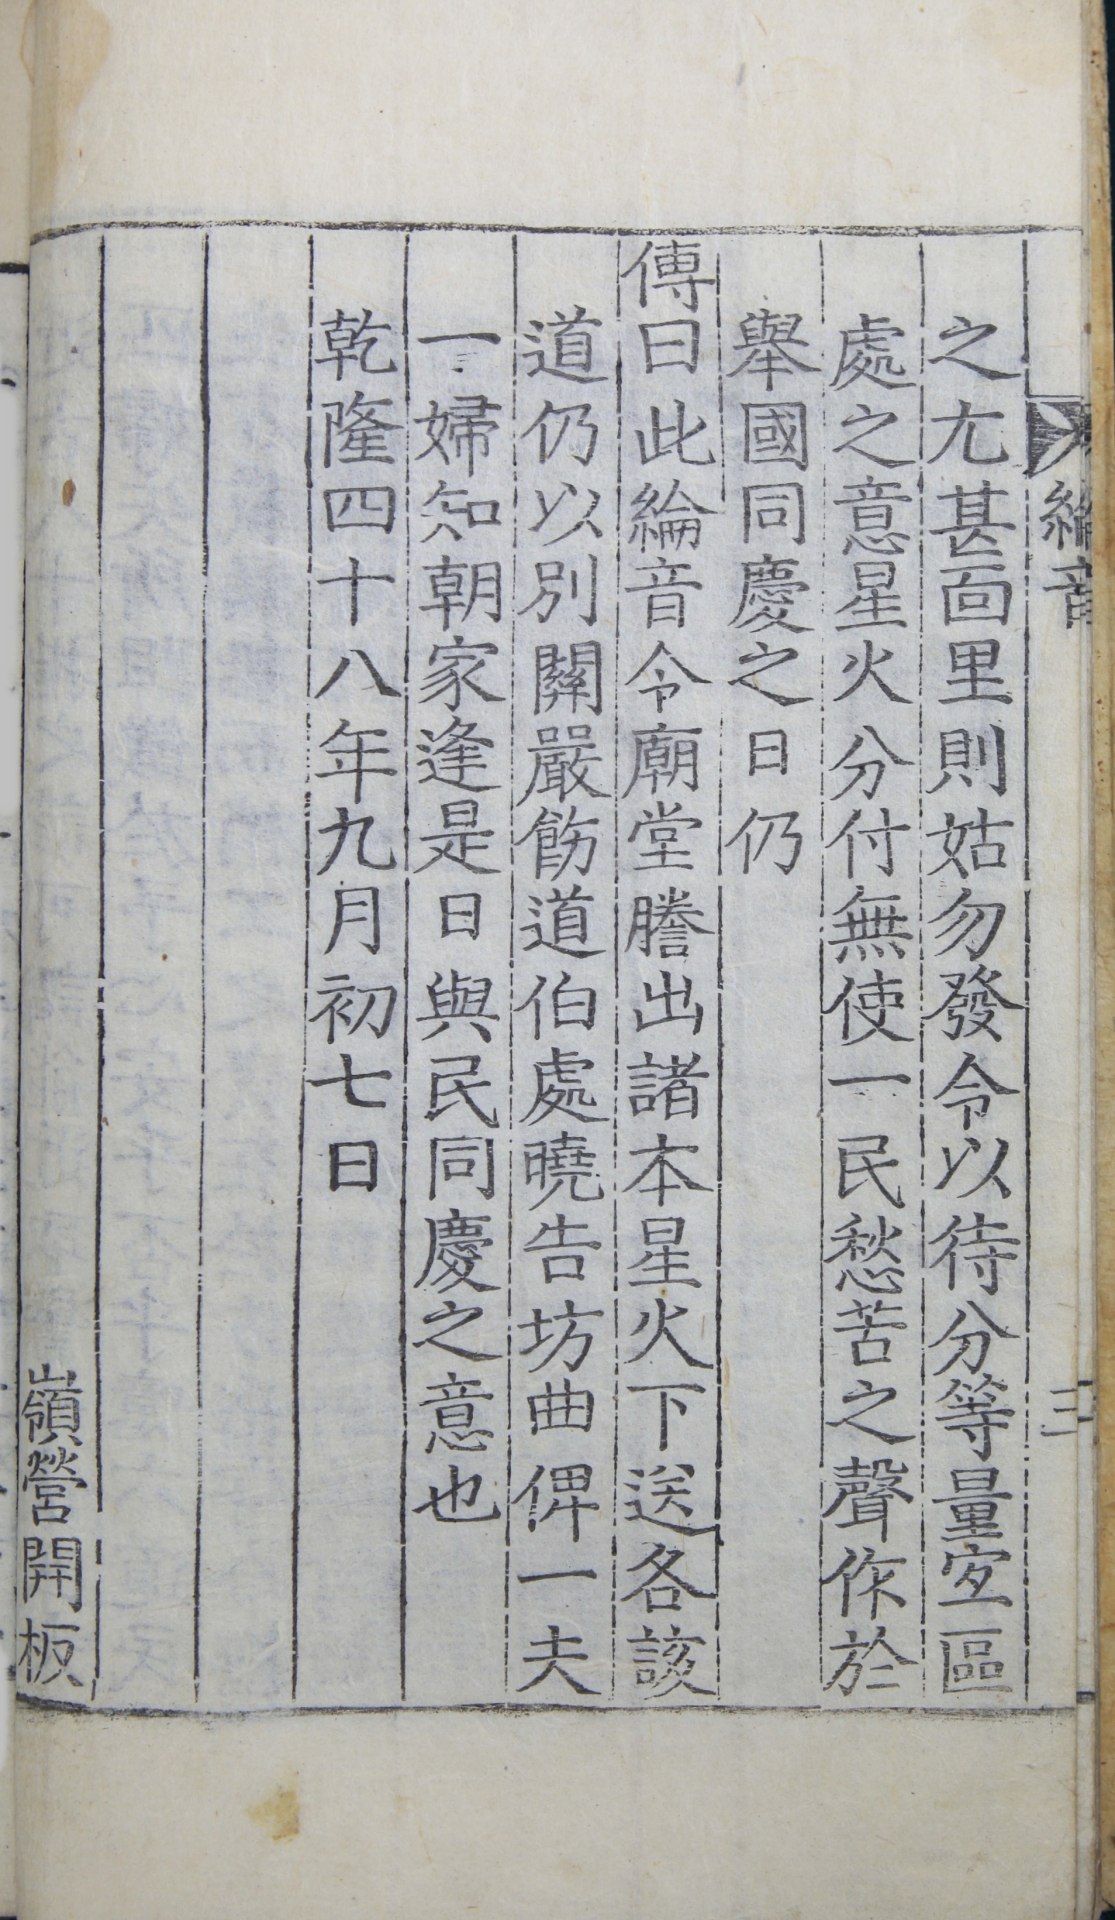 綸音
三
之尤甚面里則姑勿發令以待分等量宜區
處之意星火分付無使一民愁苦之聲作於
舉國同慶之日仍
傳曰此綸音令廟堂謄出諸本星火下送各該
道仍以別關嚴飭道伯處曉告坊曲俾一夫
一婦知朝家逢是日與民同慶之意也
乾隆四十八年九月初七日
嶺營開板